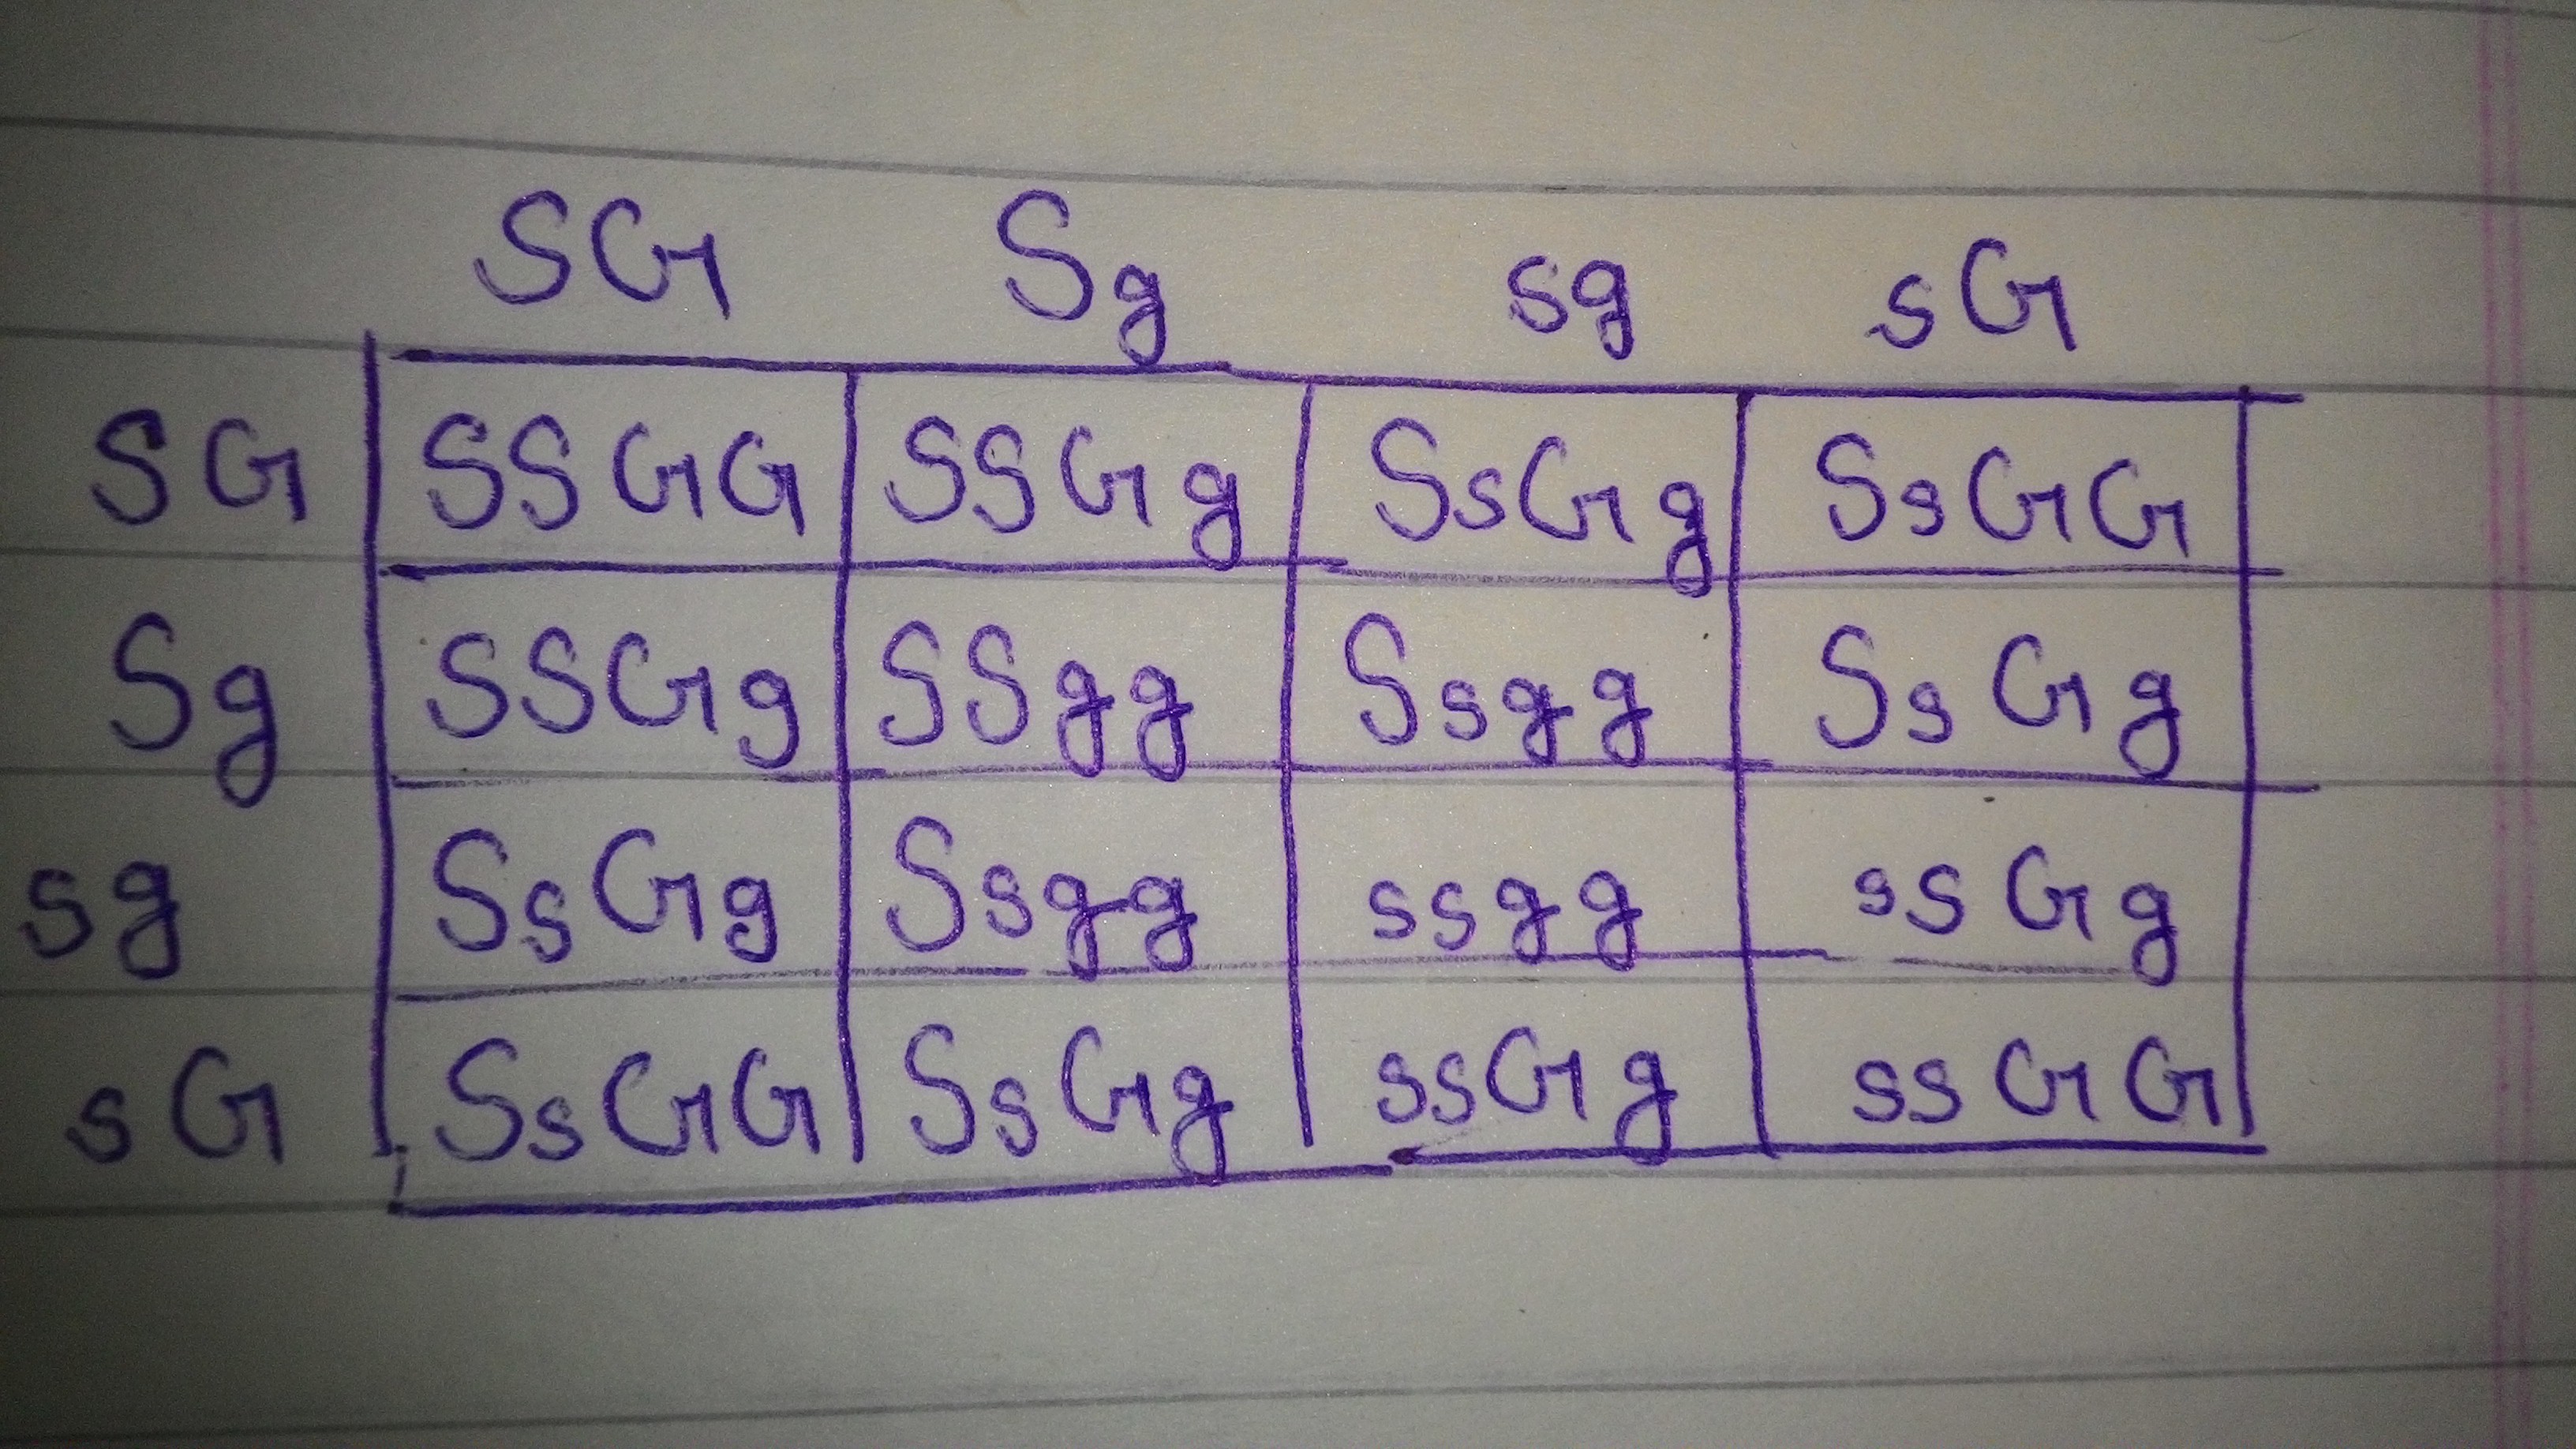 SG Sg sg sG
SG SSGG SSGg SsGg SsGG
Sg SSGg SSgg Ssgg SsGg
sg SsGg Ssgg ssgg ssGg
sG SsGG SsGg ssGg ssGG